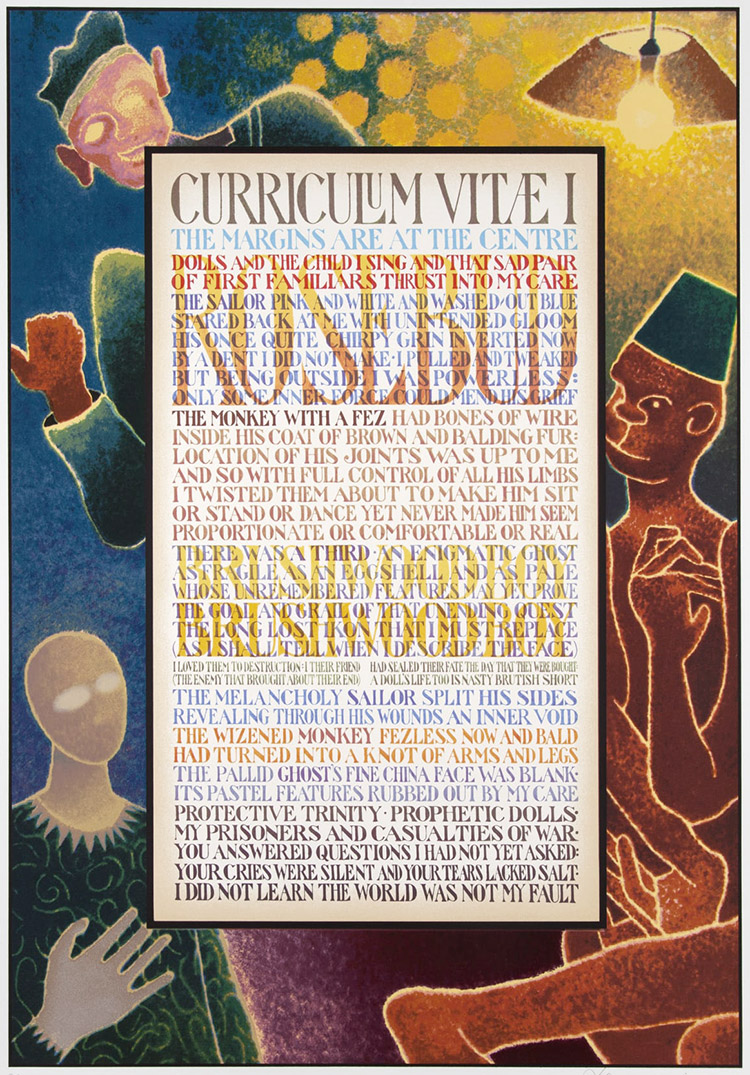 CURRICULUM VITÆ I
THE MARGINS ARE AT THE CENTRE
DOLLS AND THE CHILD I SING AND THAT SAD PAIR
OF FIRST FAMILIARS THRUST INTO MY CARE
THE SAILOR PINK AND WHITE AND WASHED-OUT BLUE
STARED BACK AT ME WITH UNINTENDED GLOOM
HIS ONCE QUITE CHIRPY GRIN INVERTED NOW
BY A DENT I DID NOT MAKE · I PULLED AND TWEAKED
BUT BEING OUTSIDE I WAS POWERLESS:
ONLY SOME INNER FORCE COULD MEND HIS GRIEF
ROSEBUD
THE MONKEY WITH A FEZ HAD BONES OF WIRE
INSIDE HIS COAT OF BROWN AND BALDING FUR:
LOCATION OF HIS JOINTS WAS UP TO ME
AND SO WITH FULL CONTROL OF ALL HIS LIMBS
I TWISTED THEM ABOUT TO MAKE HIM SIT
OR STAND OR DANCE YET NEVER MADE HIM SEEM
PROPORTIONATE OR COMFORTABLE OR REAL
THERE WAS A THIRD · AN ENIGMATIC GHOST
AS FRAGILE AS AN EGGSHELL AND AS PALE
WHOSE UNREMEMBERED FEATURES MAY YET PROVE
THE GOAL AND GRAIL OF THAT UNENDING QUEST
THE LONG LOST IKON THAT I MUST REPLACE
(AS I SHALL TELL WHEN I DESCRIBE THE FACE)
I LOVED THEM TO DESTRUCTION · I THEIR FRIEND HAD SEALED THEIR FATE THE DAY THAT THEY WERE BOUGHT·
(THE ENEMY THAT BROUGHT ABOUT THEIR END) A DOLL'S LIFE TOO IS NASTY BRUTISH SHORT
THE MELANCHOLY SAILOR SPLIT HIS SIDES
REVEALING THROUGH HIS WOUNDS AN INNER VOID
THE WIZENED MONKEY FEZLESS NOW AND BALD
HAD TURNED INTO A KNOT OF ARMS AND LEGS
THE PALLID GHOST'S FINE CHINA FACE WAS BLANK·
ITS PASTEL FEATURES RUBBED OUT BY MY CARE
PROTECTIVE TRINITY · PROPHETIC DOLLS·
MY PRISONERS AND CASUALTIES OF WAR·
YOU ANSWERED QUESTIONS I HAD NOT YET ASKED:
YOUR CRIES WERE SILENT AND YOUR TEARS LACKED SALT·
I DID NOT LEARN THE WORLD WAS NOT MY FAULT